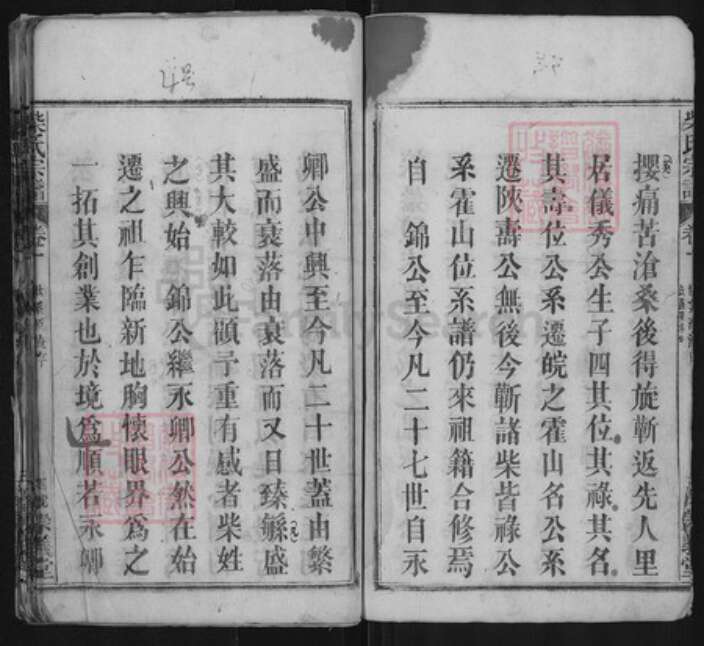 攖痛苦滄桑後得旋蘄返先人里
居儀秀公生子四其位其祿其名
其壽位公系遷皖之霍山名公系
遷陝壽公無後今蘄諸柴皆祿公
系霍山位系譜仍來祖籍合修焉
自錦公至今凡二十七世自永
卿公中興至今凡二十世蓋由繁
盛而衰落由衰落而又日臻繇盛
其大較如此顧予重有感者柴姓
之興始錦公繼永卿公然在始
遷之祖乍臨新地胸懷眼界為之
一拓其創業也於境為順若永卿
柴氏宗譜
卷一
柴氏宗譜
卷一
FamilySearch